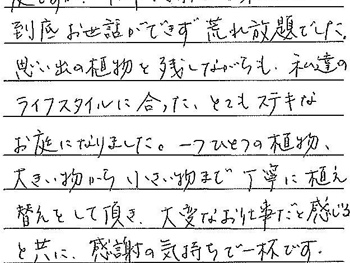 到底お世話ができず荒れ放題でした。
思い出の植物を残しながらも、私達の
ライフスタイルに合った、とてもステキな
お庭になりました。一つひとつの植物、
大きい物から小さい物まで丁寧に植え
替えをして頂き、大変なお仕事だと感じる
と共に、感謝の気持ちで一杯です。